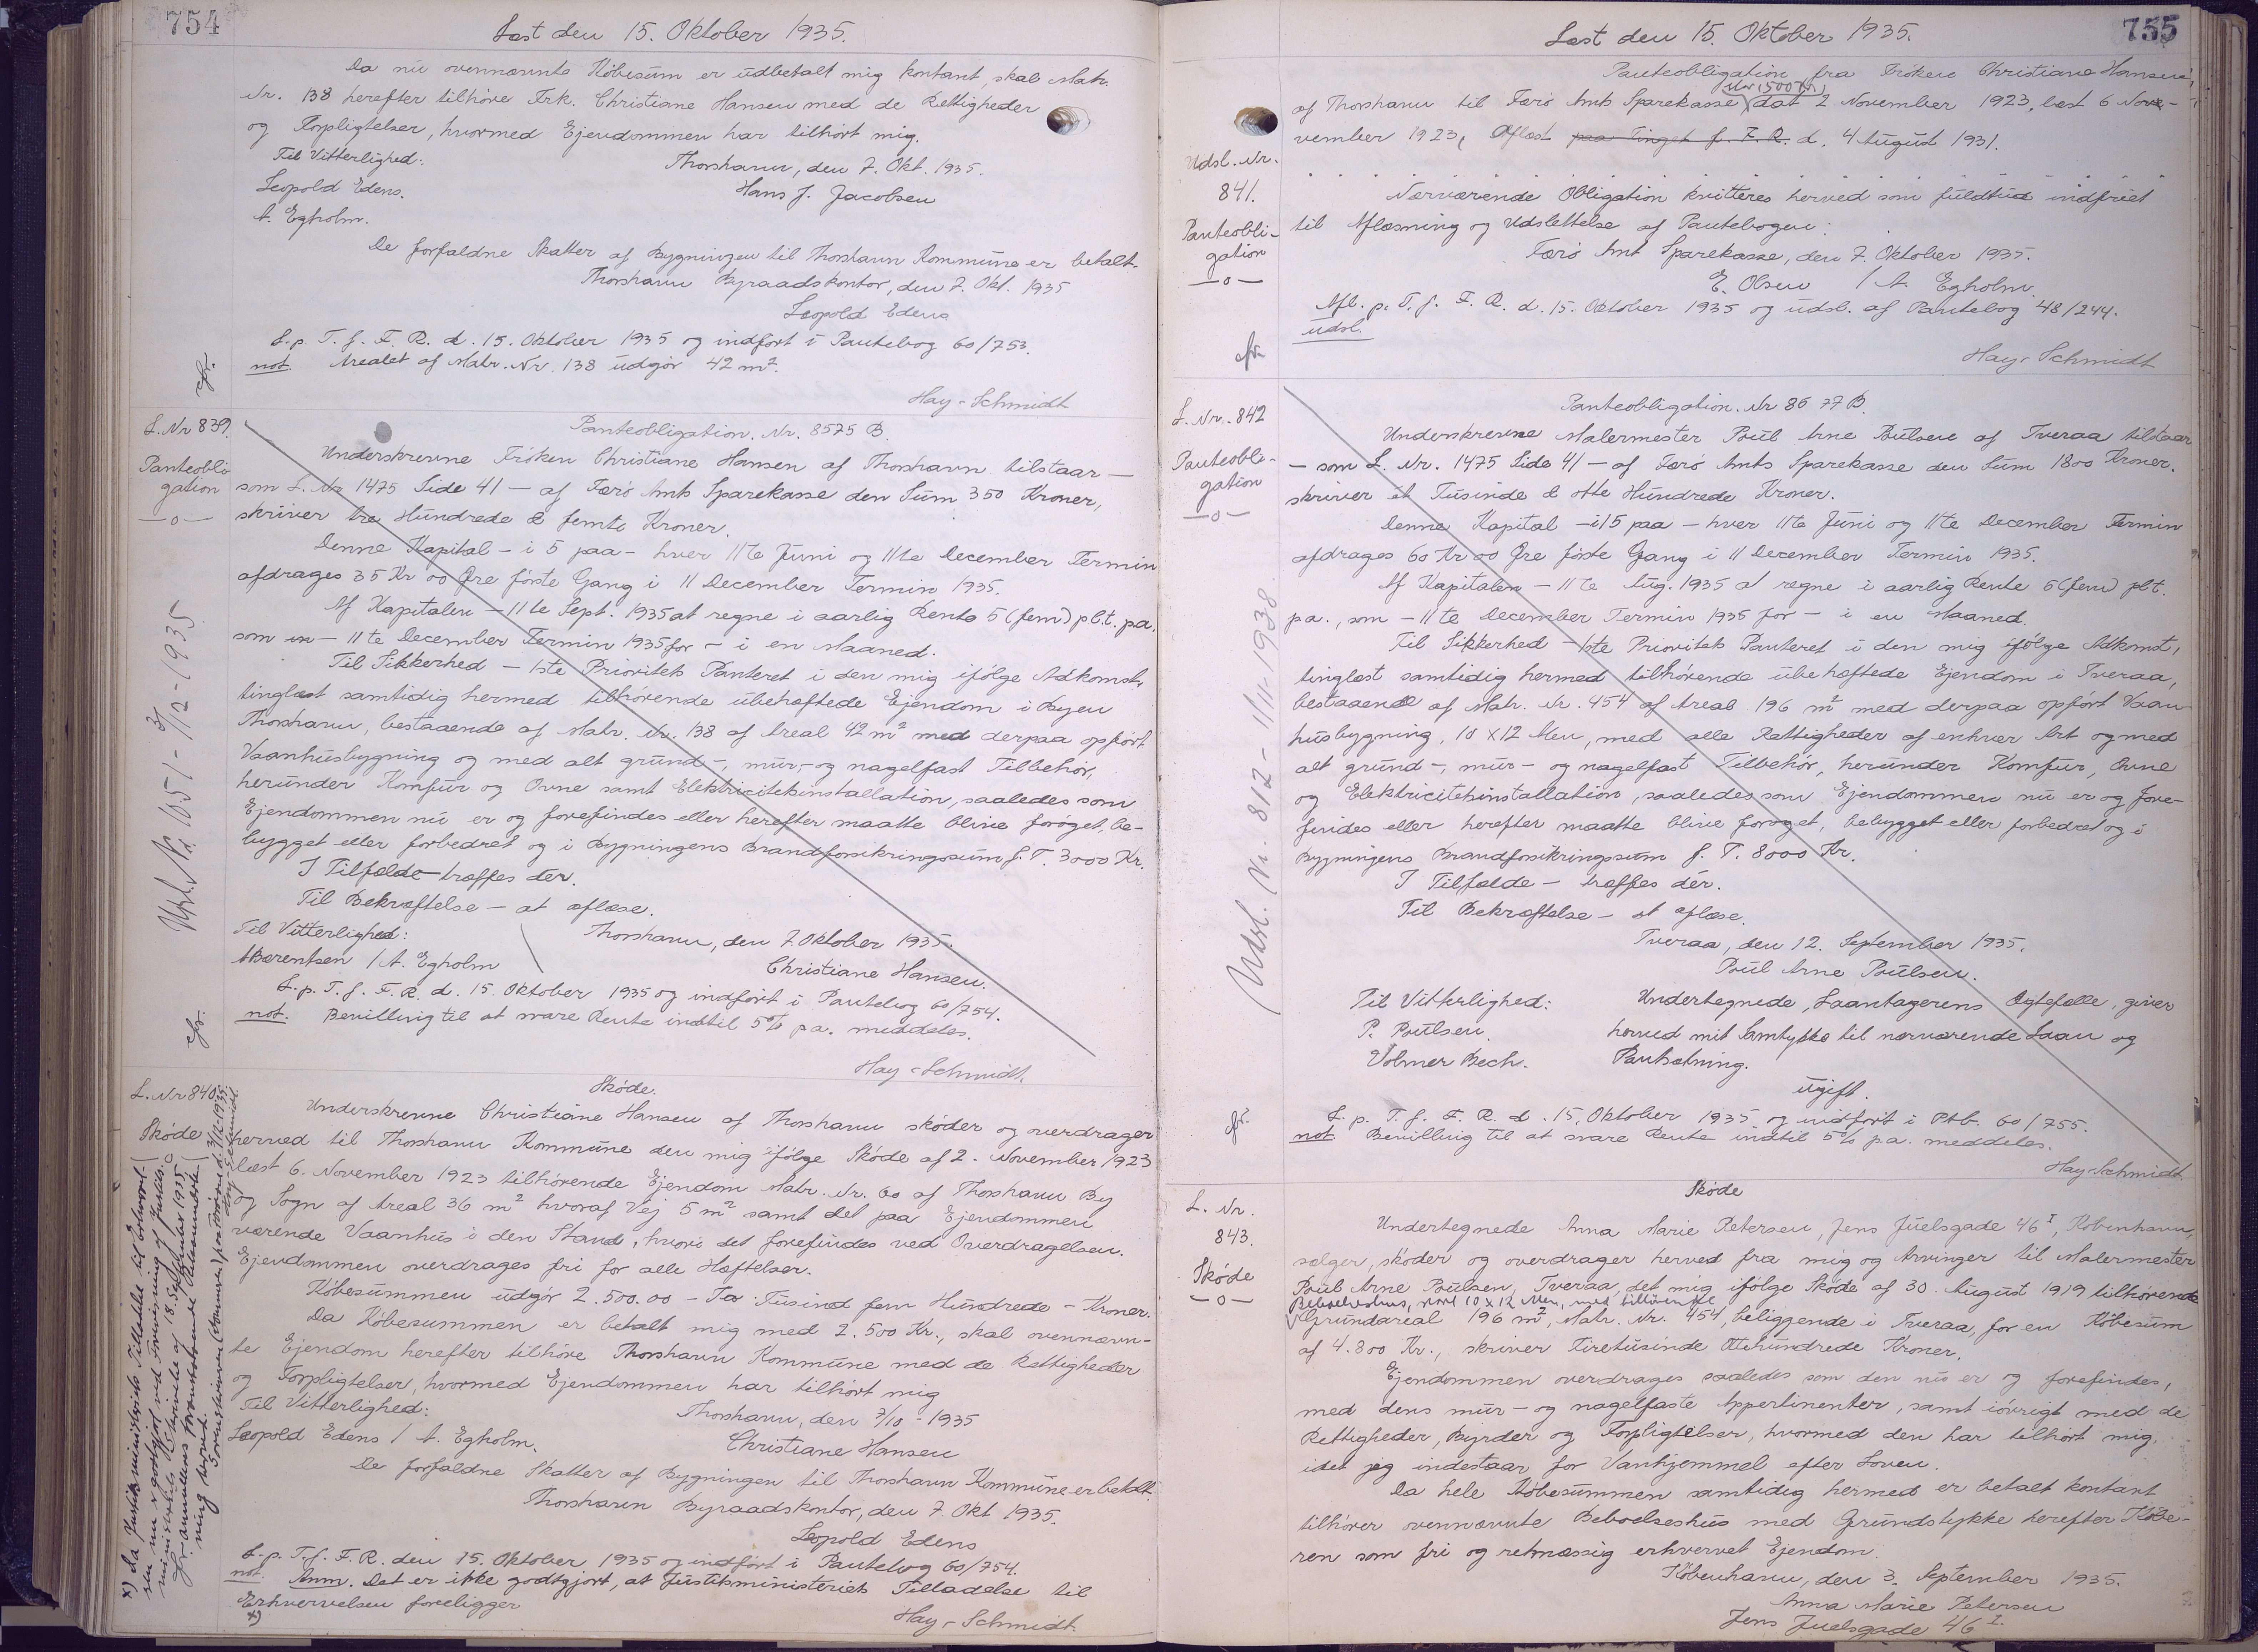 754
Læst den 15. Oktober 1935.
Da nu ovennævnte Købesum er udbetalt mig kontant, skal Matr.
Nr. 138 herefter tilhøre Frk. Christiane Hansen med de Rettigheder
og Forpligtelser, hvormed Ejendommen har tilhørt mig.
Til Vitterlighed: Thorshavn, den 7. Okt. 1935.
Leopold Edens. Hans J. Jacobsen
A. Egholm.
De forfaldne Skatter af Bygningen til Thorshavn Kommune er betalt.
Thorshavn Byraadskontor, den 7. Okt. 1935
Leopold Edens
L. p. T. f. F. R. d. 15. Oktober 1935 og indført i Pantebog 60/753.
not. Arealet af Matr. Nr. 138 udgør 42 m².
Hay-Schmidt
L. Nr 839.
Panteobli-
gation
—o—
Panteobligation. Nr. 8575 B.
Underskrevne Frøken Christiane Hansen af Thorshavn tilstaar —
som L. Nr 1475 Side 41 — af Færø Amts Sparekasse den Sum 350 Kroner,
skriver tre Hundrede & femti Kroner.
Denne Kapital — i 5 paa — hver 11te Juni og 11te December Termin
afdrages 35 Kr 00 Øre første Gang i 11 December Termin 1935.
Af Kapitalen — 11te Sept. 1935 at regne i aarlig Rente 5 (fem) pCt. p.a.
som en — 11te December Termin 1935 for — i en Maaned.
Til Sikkerhed — 1ste Prioritets Panteret i den mig ifølge Adkomst,
tinglæst samtidig hermed tilhørende ubehæftede Ejendom i Byen
Thorshavn, bestaaende af Matr. Nr. 138 af Areal 42 m² med derpaa opført
Vaanhusbygning og med alt grund-, mur,- og nagelfast Tilbehør,
herunder Komfur og Ovne samt Elektricitetsinstallation, saaledes som
Ejendommen nu er og forefindes eller herefter maatte blive forøget, be-
bygget eller forbedret og i Bygningens Brandforsikringssum f. T. 3000 Kr.
I Tilfælde — træffes dér.
Til Bekræftelse — at aflæse.
Til Vitterlighed: Thorshavn, den 7. Oktober 1935.
A Barentsen / A. Egholm Christiane Hansen.
L. p. T. f. F. R. d. 15. Oktober 1935 og indført i Pantebog 60/754.
not. Bevilling til at svare Rente indtil 5% p.a. meddeles.
Hay-Schmidt.
Udsl. Nr. 1051 - 3/12-1935
L. Nr 840.
Skøde
—o—
Skøde.
Underskrevne Christiane Hansen af Thorshavn skøder og overdrager
herved til Thorshavn Kommune den mig ifølge Skøde af 2. November 1923
læst 6. November 1923 tilhørende Ejendom Matr. Nr. 60 af Thorshavn By
og Sogn af Areal 36 m² hvoraf Vej 5 m² samt det paa Ejendommen
værende Vaanhus i den Stand, hvori det forefindes ved Overdragelsen.
Ejendommen overdrages fri for alle Hæftelser.
Købesummen udgør 2.500.00 — To Tusind fem Hundrede — Kroner.
Da Købesummen er betalt mig med 2.500 Kr., skal ovennævn-
te Ejendom herefter tilhøre Thorshavn Kommune med de Rettigheder
og Forpligtelser, hvormed Ejendommen har tilhørt mig
Til Vitterlighed: Thorshavn, den 7/10 - 1935
Leopold Edens / A. Egholm. Christiane Hansen
De forfaldne Skatter af Bygningen til Thorshavn Kommune er betalt.
Thorshavn Byraadskontor, den 7. Okt 1935.
Leopold Edens
L. p. T. f. F. R. den 15. Oktober 1935 og indført i Pantebog 60/754.
not. Anm. Det er ikke godtgjort, at Justitsministeriets Tilladelse til
Erhvervelsen foreligger
x)
Hay-Schmidt.
x) Da Justitsministeriets Tilladelse til Erhvervel-
sen nu er godtgjort ved Forevisning af Justits-
ministeriets Skrivelse af 18. September 1935,
755
Læst den 15. Oktober 1935.
Panteobligation fra Frøken Christiane Hansen,
af Thorshavn til Færø Amts Sparekasse dat 2 November 1923, læst 6 Nov-
vember 1923, Aflæst paa Tinget f. F. R. d. 4 August 1931.
Udsl. Nr.
841.
Panteobli-
gation
—o—
Nærværende Obligation kvitteres herved som fuldtud indfriet
til Aflæsning og Udslettelse af Pantebogen:
Færø Amt Sparekasse, den 7. Oktober 1935.
E. Olsen / A. Egholm.
Afl. p. T. f. F. R. d. 15. Oktober 1935 og udsl. af Pantebog 48/244.
udsl.
Hay-Schmidt
L. Nr. 842
Panteobli-
gation
—o—
Panteobligation. Nr 8677 B.
Underskrevne Malermester Poul Arne Poulsen af Tveraa tilstaar
— som L. Nr. 1475 Side 41 — af Færø Amts Sparekasse den Sum 1800 Kroner.
skriver ét Tusinde & otte Hundrede Kroner.
Denne Kapital — i 15 paa — hver 11te Juni og 11te December Termin
afdrages 60 Kr 00 Øre første Gang i 11 December Termin 1935.
Af Kapitalen — 11te Aug. 1935 at regne i aarlig Rente 5 (fem) pCt.
p a., som — 11te December Termin 1935 for — i en Maaned.
Til Sikkerhed — 1ste Prioritets Panteret i den mig ifølge Adkomst,
tinglæst samtidig hermed tilhørende ubehæftede Ejendom i Tveraa,
bestaaende af Matr. Nr. 454 af Areal 196 m² med derpaa opført Vaan-
husbygning, 10 x 12 Alen, med alle Rettigheder af enhver Art og med
alt grund-, mur- og nagelfast Tilbehør, herunder Komfur, Ovne
og Elektricitetsinstallation, saaledes som Ejendommen nu er og fore-
findes eller herefter maatte blive forøget, bebygget eller forbedret og i
Bygningens Brandforsikringssum f. T. 8000 Kr.
I Tilfælde — træffes dér.
Til Bekræftelse — at aflæse.
Tveraa, den 12. September 1935.
Poul Arne Poulsen.
Til Vitterlighed: Undertegnede, Laantagerens Ægtefælle, giver
P. Poulsen. herved mit Samtykke til nærværende Laan og
Volmer Bech. Pantsætning.
ugift.
L. p. T. f. F. R. d. 15. Oktober 1935 og indført i Ptb. 60/755.
not. Bevilling til at svare Rente indtil 5% p a. meddeles.
Hay-Schmidt
Udsl. Nr. 812 - 1/11-1938.
L. Nr.
843.
Skøde
—o—
Skøde
Undertegnede Anna Marie Petersen, Jens Juelsgade 46 I, København,
sælger, skøder og overdrager herved fra mig og Arvinger til Malermester
Poul Arne Poulsen, Tveraa, det mig ifølge Skøde af 30. August 1919 tilhørende
Beboelseshus, 10 x 12 Alen, med tilhørende
Grundareal 196 m², Matr. Nr. 454, beliggende i Tveraa, for en Købesum
af 4.800 Kr., skriver Firetusinde Ottehundrede Kroner.
Ejendommen overdrages saaledes som den nu er og forefindes,
med dens mur- og nagelfaste Appertinenter, samt iøvrigt med de
Rettigheder, Byrder og Forpligtelser, hvormed den har tilhørt mig,
idet jeg indestaar for Vanhjemmel efter Loven.
Da hele Købesummen samtidig hermed er betalt kontant
tilhører ovennævnte Beboelseshus med Grundstykke herefter Købe-
ren som fri og retmæssig erhvervet Ejendom.
København, den 3. September 1935.
Anna Marie Petersen
Jens Juelsgade 46 I.